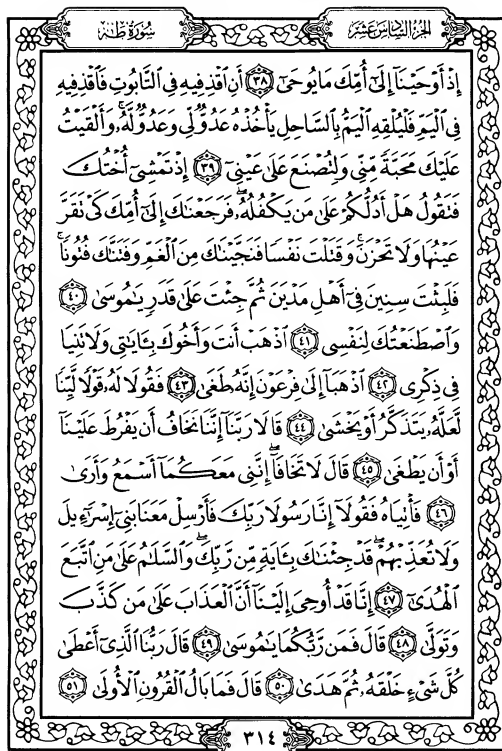 سُورَةُ طٰهٰ
الجُزْءُ السَّادِسَ عَشَرَ
إِذْ أَوْحَيْنَآ إِلَىٰٓ أُمِّكَ مَا يُوحَىٰٓ ٣٨ أَنِ ٱقْذِفِيهِ فِى ٱلتَّابُوتِ فَٱقْذِفِيهِ
فِى ٱلْيَمِّ فَلْيُلْقِهِ ٱلْيَمُّ بِٱلسَّاحِلِ يَأْخُذْهُ عَدُوٌّ لِّى وَعَدُوٌّ لَّهُۥ ۚ وَأَلْقَيْتُ
عَلَيْكَ مَحَبَّةً مِّنِّى وَلِتُصْنَعَ عَلَىٰ عَيْنِىٓ ٣٩ إِذْ تَمْشِىٓ أُخْتُكَ
فَتَقُولُ هَلْ أَدُلُّكُمْ عَلَىٰ مَن يَكْفُلُهُۥ ۖ فَرَجَعْنَٰكَ إِلَىٰٓ أُمِّكَ كَىْ تَقَرَّ
عَيْنُهَا وَلَا تَحْزَنَ ۚ وَقَتَلْتَ نَفْسًا فَنَجَّيْنَٰكَ مِنَ ٱلْغَمِّ وَفَتَنَّٰكَ فُتُونًا ۚ
فَلَبِثْتَ سِنِينَ فِىٓ أَهْلِ مَدْيَنَ ثُمَّ جِئْتَ عَلَىٰ قَدَرٍ يَٰمُوسَىٰ ٤٠
وَٱصْطَنَعْتُكَ لِنَفْسِى ٤١ ٱذْهَبْ أَنتَ وَأَخُوكَ بِـَٔايَٰتِى وَلَا تَنِيَا
فِى ذِكْرِى ٤٢ ٱذْهَبَآ إِلَىٰ فِرْعَوْنَ إِنَّهُۥ طَغَىٰ ٤٣ فَقُولَا لَهُۥ قَوْلًا لَّيِّنًا
لَّعَلَّهُۥ يَتَذَكَّرُ أَوْ يَخْشَىٰ ٤٤ قَالَا رَبَّنَآ إِنَّنَا نَخَافُ أَن يَفْرُطَ عَلَيْنَآ
أَوْ أَن يَطْغَىٰ ٤٥ قَالَ لَا تَخَافَآ ۖ إِنَّنِى مَعَكُمَآ أَسْمَعُ وَأَرَىٰ
٤٦ فَأْتِيَاهُ فَقُولَآ إِنَّا رَسُولَا رَبِّكَ فَأَرْسِلْ مَعَنَا بَنِىٓ إِسْرَٰٓءِيلَ
وَلَا تُعَذِّبْهُمْ ۖ قَدْ جِئْنَٰكَ بِـَٔايَةٍ مِّن رَّبِّكَ ۖ وَٱلسَّلَٰمُ عَلَىٰ مَنِ ٱتَّبَعَ
ٱلْهُدَىٰٓ ٤٧ إِنَّا قَدْ أُوحِىَ إِلَيْنَآ أَنَّ ٱلْعَذَابَ عَلَىٰ مَن كَذَّبَ
وَتَوَلَّىٰ ٤٨ قَالَ فَمَن رَّبُّكُمَا يَٰمُوسَىٰ ٤٩ قَالَ رَبُّنَا ٱلَّذِىٓ أَعْطَىٰ
كُلَّ شَىْءٍ خَلْقَهُۥ ثُمَّ هَدَىٰ ٥٠ قَالَ فَمَا بَالُ ٱلْقُرُونِ ٱلْأُولَىٰ ٥١
٣١٤